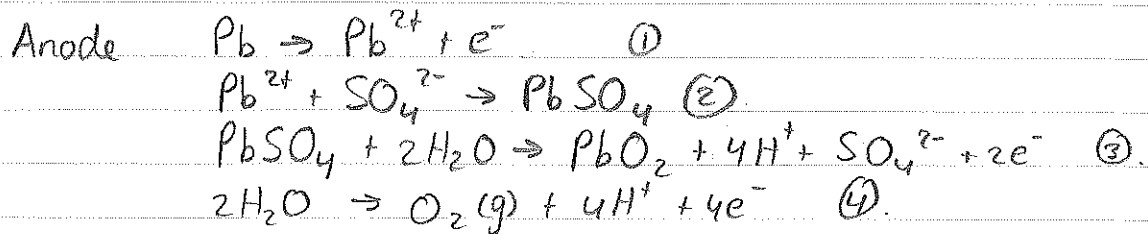 Anode Pb → Pb²⁺ + e⁻ ①
Pb²⁺ + SO₄²⁻ → PbSO₄ ②
PbSO₄ + 2H₂O → PbO₂ + 4H⁺ + SO₄²⁻ + 2e⁻ ③.
2H₂O → O₂ (g) + 4H⁺ + 4e⁻ ④.